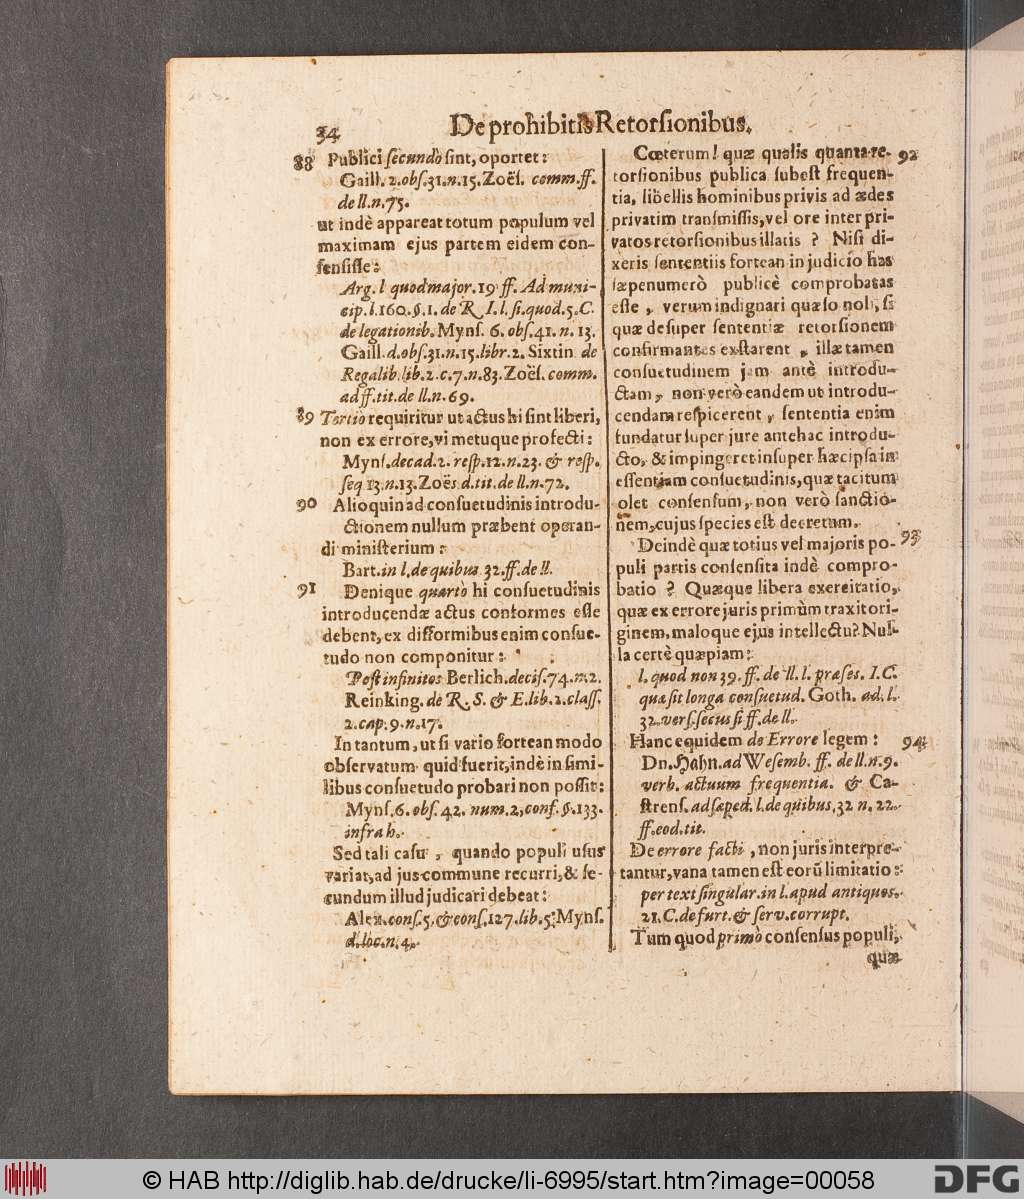 34
De prohibitis Retorsionibus.
88 Publici secundò sint, oportet:
Gaill. 2. obs. 31. n. 15. Zoës. comm. ff.
de ll. n. 75.
ut indè appareat totum populum vel
maximam ejus partem eidem con-
sensisse:
Arg. l quod major. 19 ff. Ad muni-
cip. l. 160. §. 1. de R I. l. si. quod. 5. C.
de legationib. Myns. 6. obs. 41. n. 13.
Gaill. d. obs. 31. n. 15. libr. 2. Sixtin de
Regalib. lib. 2. c. 7. n. 83. Zoës. comm.
ad ff. tit. de ll. n. 69.
89 Tertiò requiritur ut actus hi sint liberi,
non ex errore, vi metuque profecti:
Myns. decad. 2. resp. 12. n. 23. & resp.
seq 13. n. 13. Zoës d. tit. de ll. n. 72.
90 Alioquin ad consuetudinis introdu-
ctionem nullum præbent operan-
di ministerium:
Bart. in l. de quibus 32. ff. de ll.
91 Denique quartò hi consuetudinis
introducendæ actus conformes esse
debent, ex difformibus enim consue-
tudo non componitur:
Post infinitos Berlich. decis. 74. n. 2.
Reinking. de R. S. & E. lib. 2. class.
2. cap. 9. n. 17.
In tantum, ut si vario fortean modo
observatum quid fuerit, indè in simi-
libus consuetudo probari non possit:
Myns. 6. obs. 42. num. 2, conf. §. 133.
infra h.
Sed tali casu, quando populi usus
variat, ad jus commune recurri, & se-
cundum illud judicari debeat:
Alex. cons. 5. & cons. 127. lib. 5. Myns.
d. loc. n. 4.
Cœterum! quæ qualis quanta re- 92
torsionibus publica subest frequen-
tia, libellis hominibus privis ad ædes
privatim transmissis, vel ore inter pri-
vatos retorsionibus illatis? Nisi di-
xeris sententiis fortean in judicio has
sæpenumerò publicè comprobatas
esse, verum indignari quæso noli, si
quæ desuper sententiæ retorsionem
confirmantes exstarent, illæ tamen
consuetudinem jam antè introdu-
ctam, non verò eandem ut introdu-
cendam respicerent, sententia enim
fundatur super jure antehac introdu-
cto, & impingeret insuper hæc ipsa in
essentiam consuetudinis, quæ tacitum
olet consensum, non verò sanctio-
nem, cujus species est decretum.
Deindè quæ totius vel majoris po- 93
puli partis consensita indè compro-
batio? Quæque libera exercitatio,
quæ ex errore juris primùm traxit ori-
ginem, maloque ejus intellectu? Nul-
la certè quæpiam:
l. quod non 39. ff. de ll. l. præses. 1. C.
quæ sit longa consuetud. Goth. ad. l.
32. vers. secus si ff. de ll.
Hanc equidem de Errore legem: 94
Dn. Hahn. ad Wesemb. ff. de ll. n. 9.
verb. actuum frequentia. & Ca-
strens. ad sæped. l. de quibus, 32 n. 22.
ff. eod. tit.
De errore facti, non juris interpre-
tantur, vana tamen est eorū limitatio:
per text singular. in l. apud antiquos.
21. C. de furt. & serv. corrupt.
Tum quod primò consensus populi,
quæ
© HAB http://diglib.hab.de/drucke/li-6995/start.htm?image=00058
DFG